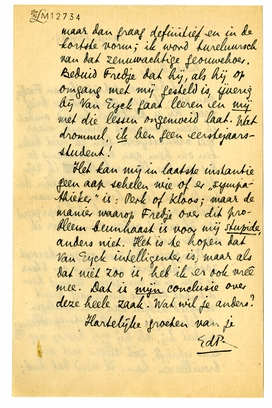 M12734
maar dan graag definitief en in de
kortste vorm; ik word tureluursch
van dat zenuwachtige geouwehoer.
Beduid Fredje dat hij, als hij op
omgang met mij gesteld is, ijverig
bij Van Eyck gaat leeren en mij
met die lessen ongemoeid laat. Wat
drommel, ik ben geen eerstejaars-
student!
Het kan mij in laatste instantie
geen aap schelen wie of er „sympa-
thieker" is: Perk of Kloos; maar de
manier waarop Fredje over dit pro-
bleem beunhaast is voor mij stupide,
anders niet. Het is te hopen dat
Van Eyck intelligenter is, maar als
dat niet zoo is, heb ik er ook vrede
mee. Dat is mijn conclusie over
deze heele zaak. Wat wil je anders?
Hartelijke groeten van je
EdP.